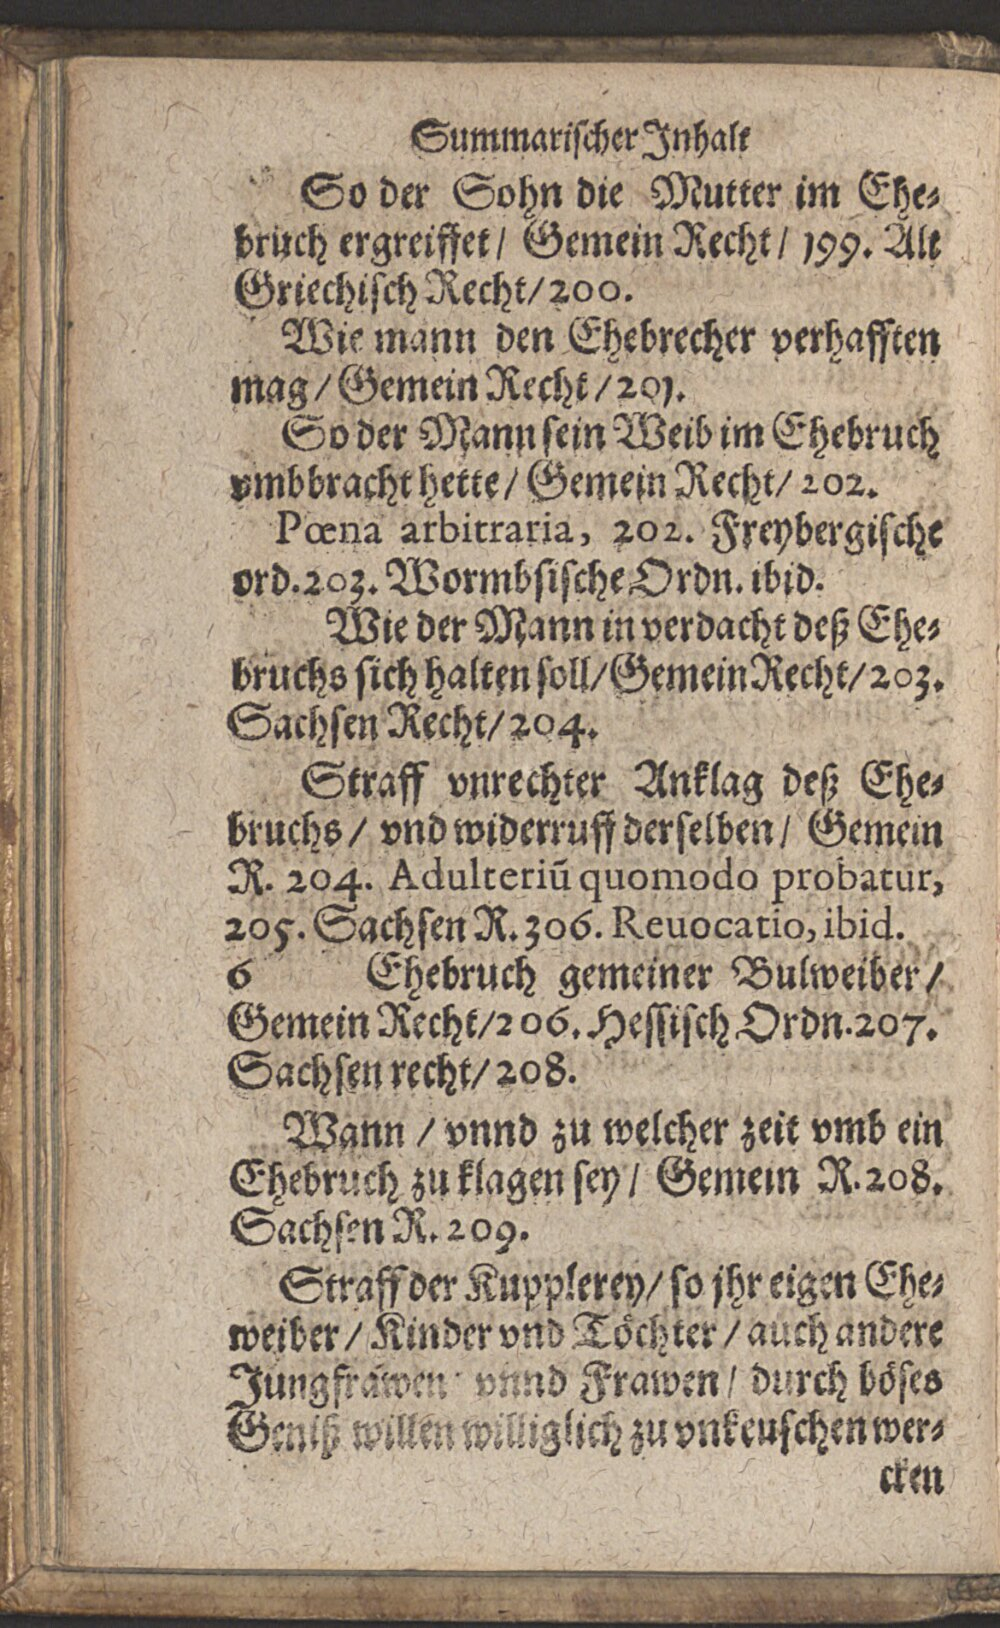 Summarischer Inhalt
So der Sohn die Mutter im Ehe-
bruch ergreiffet / Gemein Recht / 199. Alt
Griechisch Recht / 200.
Wie mann den Ehebrecher verhafften
mag / Gemein Recht / 201.
So der Mann sein Weib im Ehebruch
vmbbracht hette / Gemein Recht / 202.
Pœna arbitraria, 202. Freybergische
ord. 203. Wormbsische Ordn. ibid.
Wie der Mann in verdacht deß Ehe-
bruchs sich halten soll / Gemein Recht / 203.
Sachsen Recht / 204.
Straff vnrechter Anklag deß Ehe-
bruchs / vnd widerruff derselben / Gemein
R. 204. Adulteriū quomodo probatur,
205. Sachsen R. 306. Reuocatio, ibid.
6 Ehebruch gemeiner Bulweiber /
Gemein Recht / 206. Hessisch Ordn. 207.
Sachsen recht / 208.
Wann / vnnd zu welcher zeit vmb ein
Ehebruch zu klagen sey / Gemein R. 208.
Sachsen R. 209.
Straff der Kupplerey / so jhr eigen Ehe-
weiber / Kinder vnd Töchter / auch andere
Jungfrawen vnnd Frawen / durch böses
Geniß willen williglich zu vnkeuschen wer-
cken